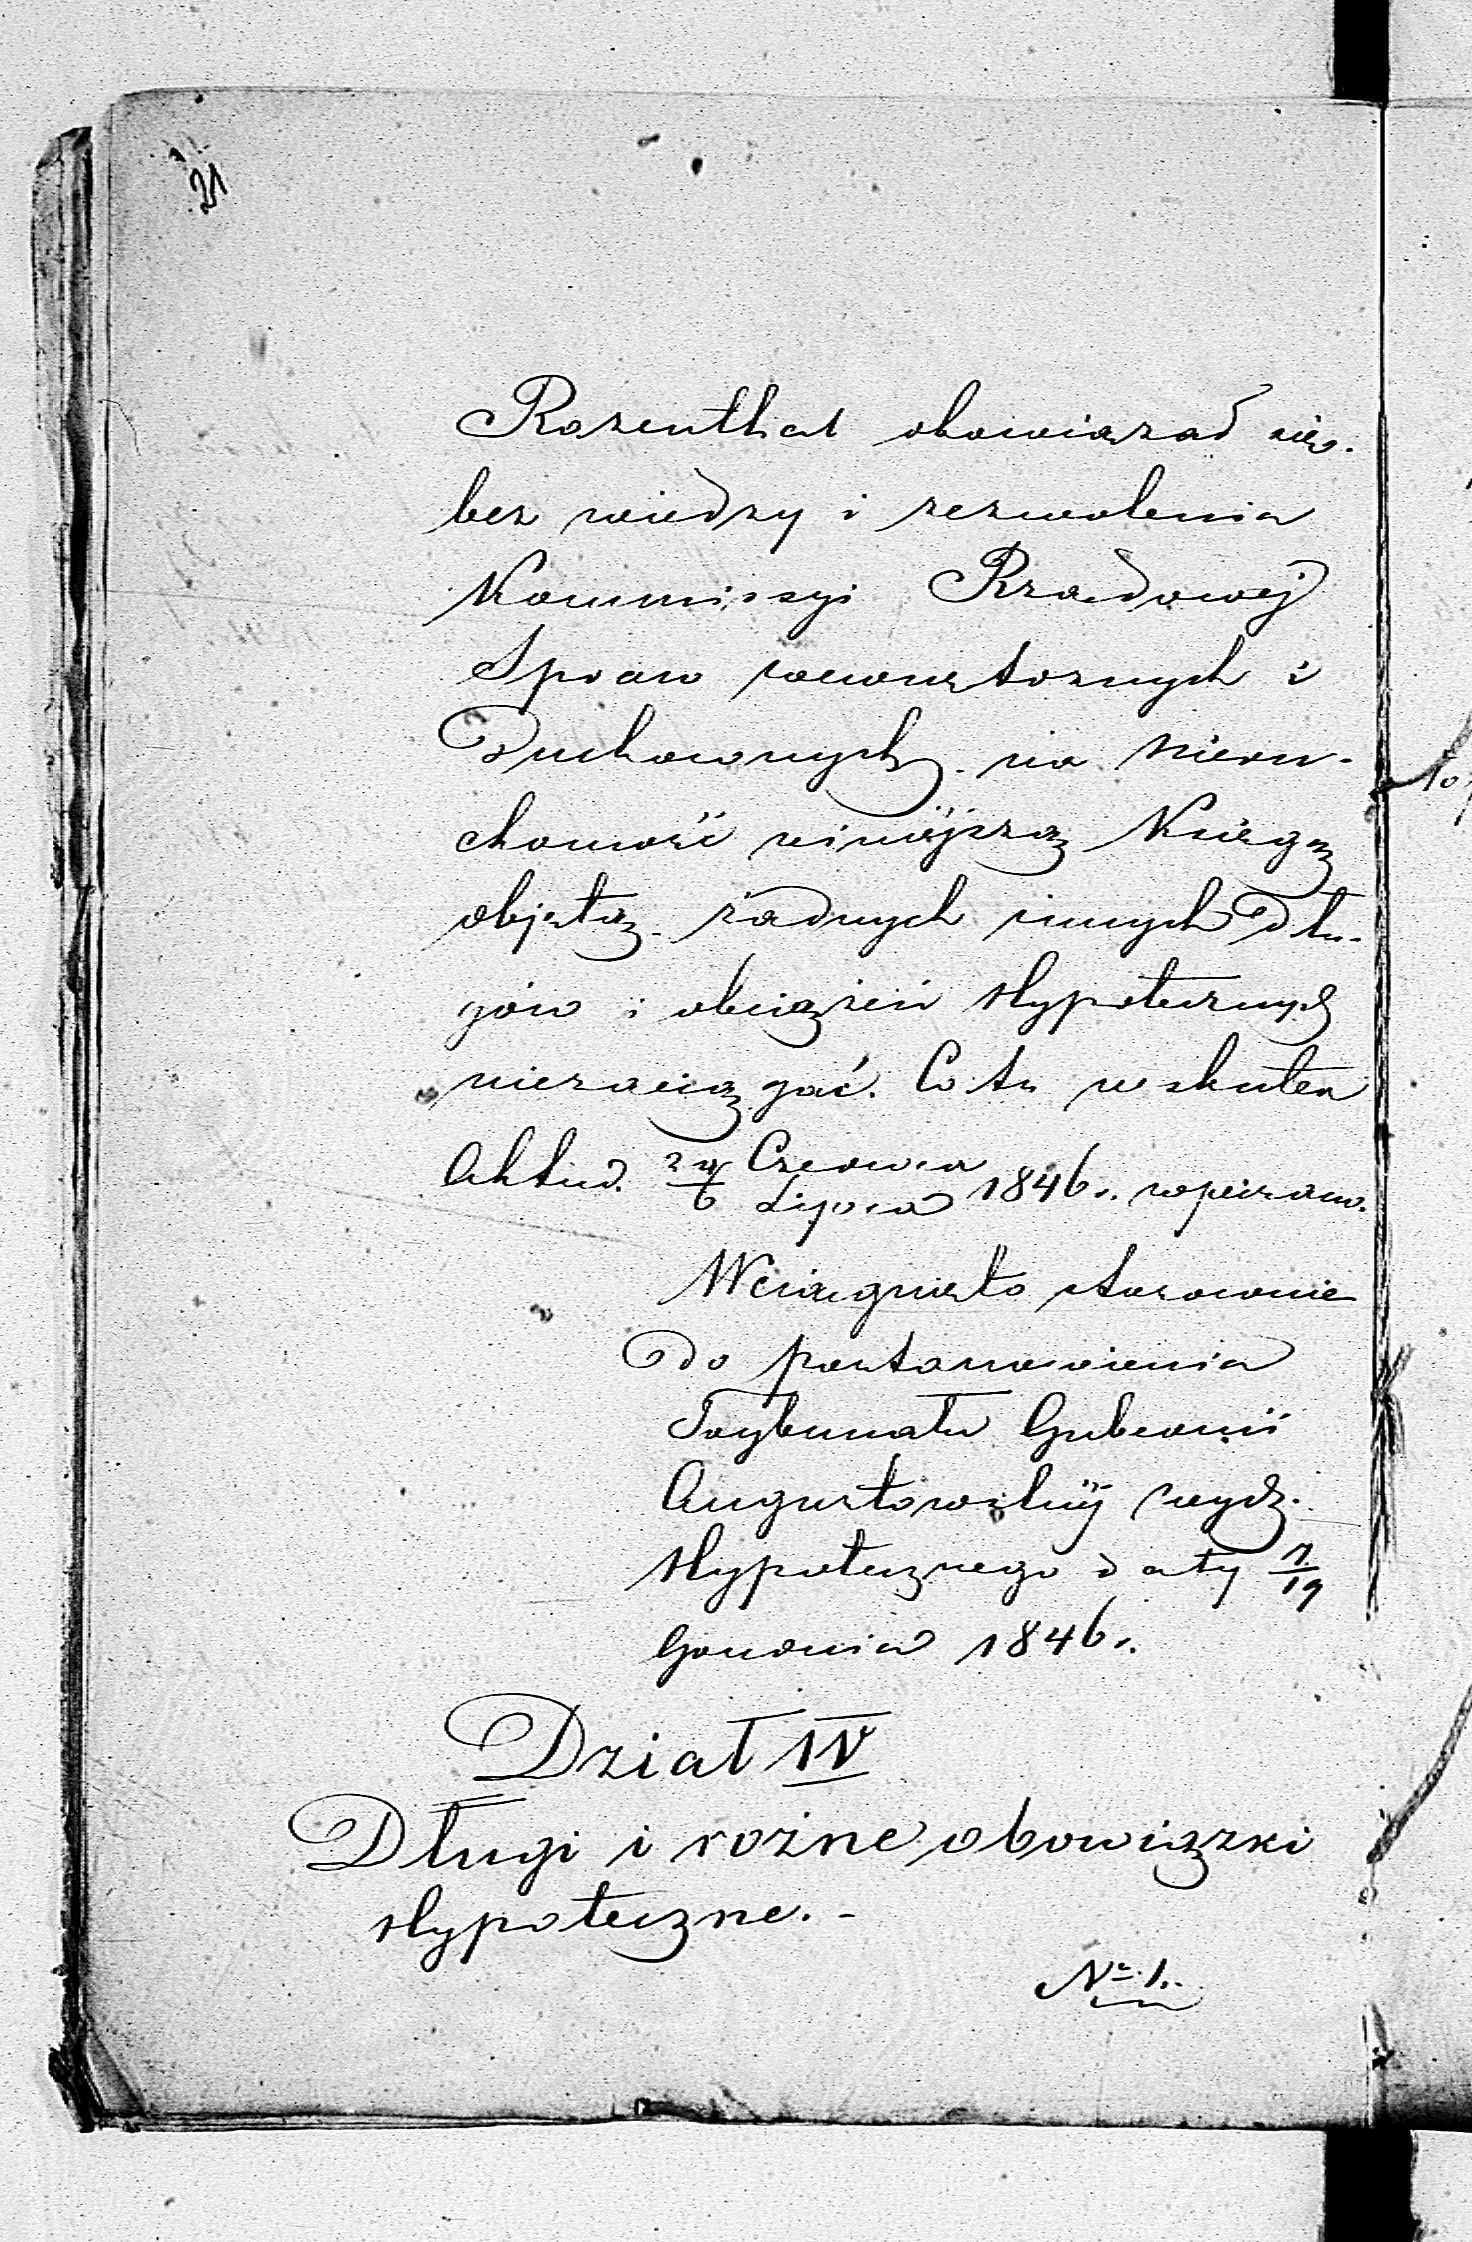 21
Rozenthal obowiązał się
bez wiedzy i zezwolenia
Kommissyi Rządowej
Spraw wewnętrznych i
Duchownych na nieru-
chomość niniejszą Księgą
objętą żadnych innych dłu-
gów i obciążeń Hypotecznych
niezaciągać. Co tu w skutek
Aktu d. 24/6 Czerwca/Lipca 1846 r. wpisano.
Wciągnięto stosownie
do postanowienia
Trybunału Gubernii
Augustowskiej wydz.
Hypotecznego daty 7/19
Grudnia 1846 r.
Dział IV
Długi i rożne obowiązki
Hypoteczne. -
No 1.